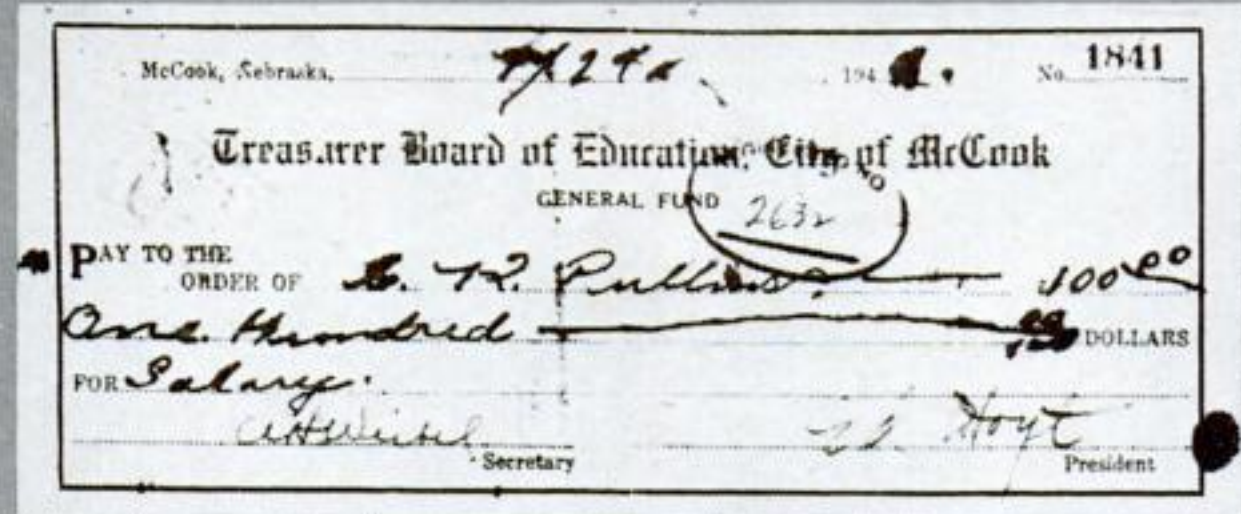 McCook, Nebraska, 194 No. 1841
Treasurer Board of Education, City of McCook
GENERAL FUND
2632
PAY TO THE
ORDER OF R. Pullins. 100 00
One Hundred 00/100 DOLLARS
FOR Salary.
Hoyt
Secretary
President